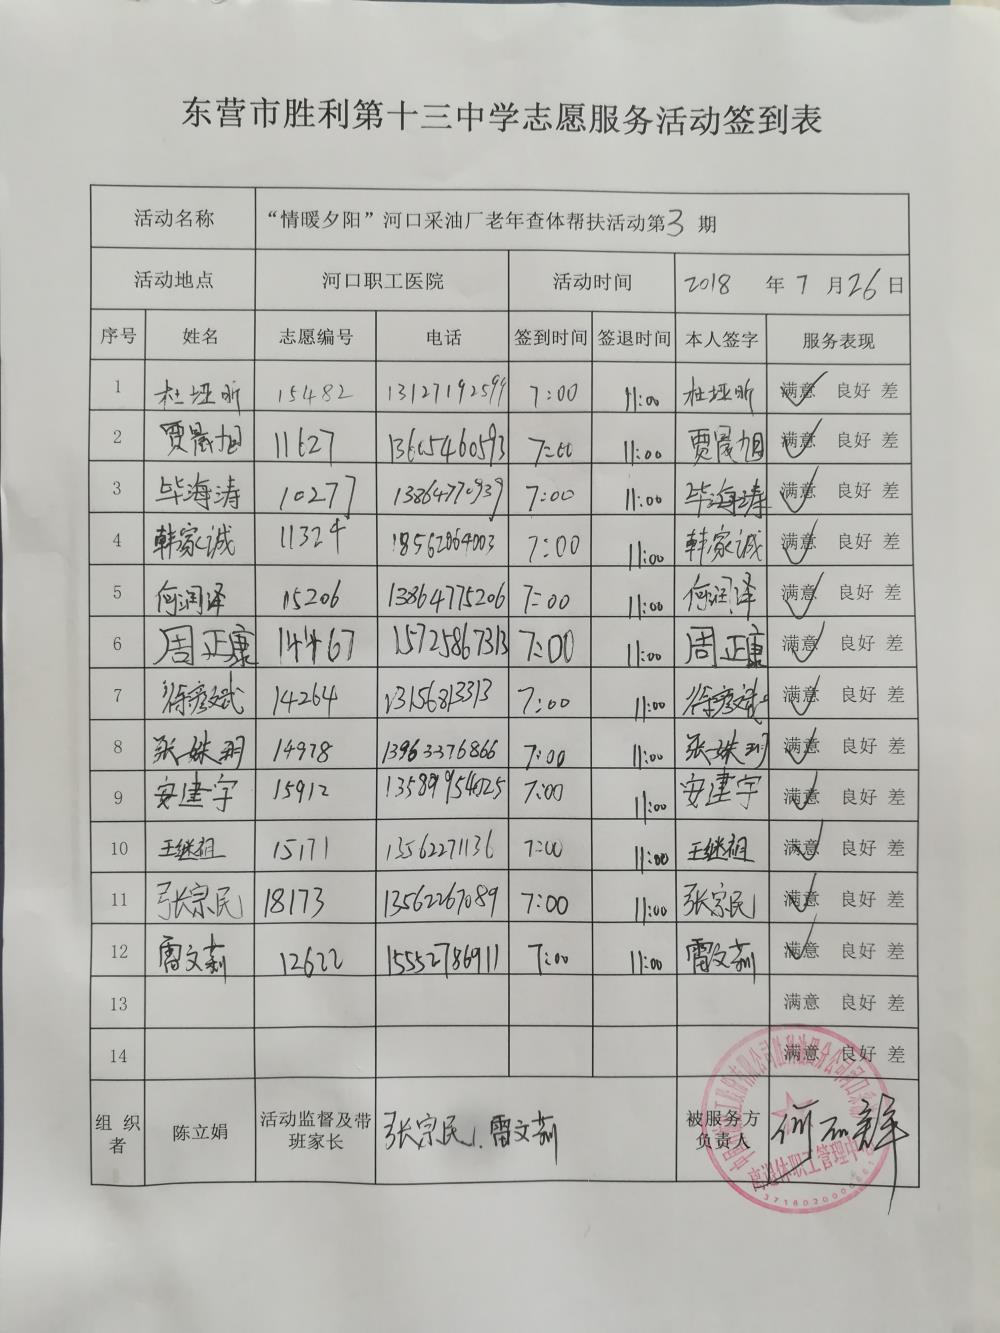 东营市胜利第十三中学志愿服务活动签到表
活动名称 “情暖夕阳”河口采油厂老年查体帮扶活动第3期
活动地点 河口职工医院 活动时间 2018 年 7 月 26 日
序号 姓名 志愿编号 电话 签到时间 签退时间 本人签字 服务表现
1 杜垭昕 15482 13127192599 7:00 11:00 杜垭昕 满意 良好 差
2 贾晨旭 11627 13605460593 7:00 11:00 贾晨旭 满意 良好 差
3 毕海涛 10277 13864770939 7:00 11:00 毕海涛 满意 良好 差
4 韩家诚 11324 18562064003 7:00 11:00 韩家诚 满意 良好 差
5 何润泽 15206 13864775206 7:00 11:00 何润泽 满意 良好 差
6 周正康 14467 15725867313 7:00 11:00 周正康 满意 良好 差
7 徐彦斌 14264 13156813313 7:00 11:00 徐彦斌 满意 良好 差
8 张姝玥 14978 13963376866 7:00 11:00 张姝玥 满意 良好 差
9 安建宇 15912 13589954025 7:00 11:00 安建宇 满意 良好 差
10 王继祖 15171 13562271136 7:00 11:00 王继祖 满意 良好 差
11 张宗民 18173 13562267089 7:00 11:00 张宗民 满意 良好 差
12 雷文莉 12622 15552786911 7:00 11:00 雷文莉 满意 良好 差
13 满意 良好 差
14 满意 良好 差
组织者 陈立娟 活动监督及带班家长 张宗民、雷文莉 被服务方负责人
离退休职工管理中